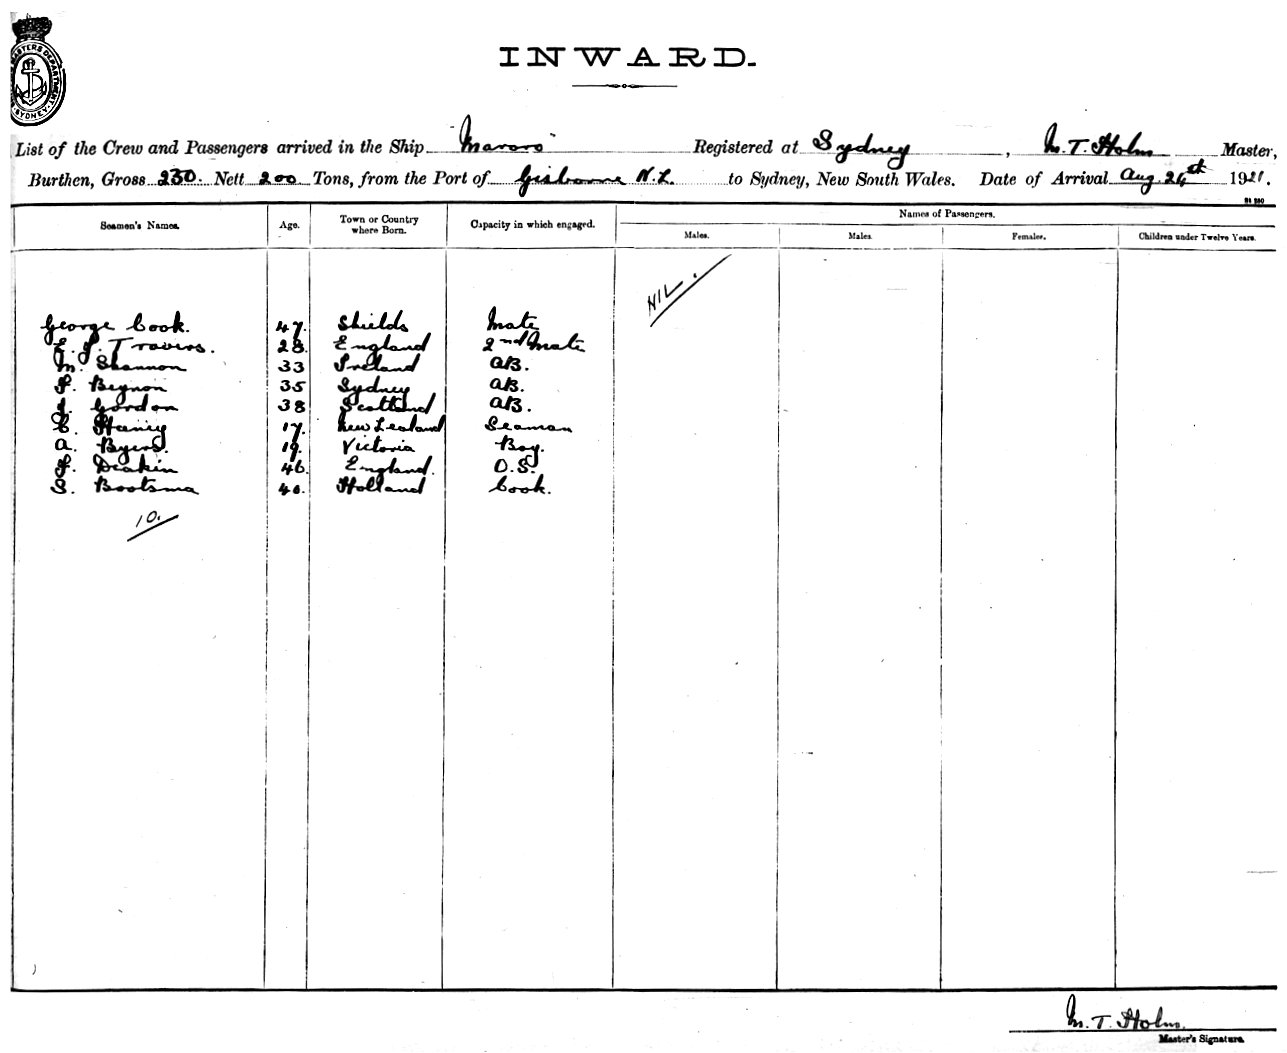 MASTERS DEPARTMENT
SYDNEY
INWARD.
List of the Crew and Passengers arrived in the Ship "Mororo" Registered at Sydney, M. T. Holm Master,
Burthen, Gross 230. Nett 200 Tons, from the Port of Gisborne N.Z. to Sydney, New South Wales. Date of Arrival Aug. 24th 1921.
Seamen's Names. Age. Town or Country where Born. Capacity in which engaged. Names of Passengers.
Males. Males Females. Children under Twelve Years.
NIL.
George Cook. 47. Shields Mate
E. J. Travers. 28. England 2nd Mate
M. Shannon 33 Ireland AB.
F. Beynon 35 Sydney AB.
J. Gordon 38 Scotland AB.
C. Haney 17. New Zealand Seaman
A. Byers. 19. Victoria Boy.
F. Deakin 46. England. O.S.
S. Bootsma 40. Holland Cook.
10.
M. T. Holm.
Master's Signature.